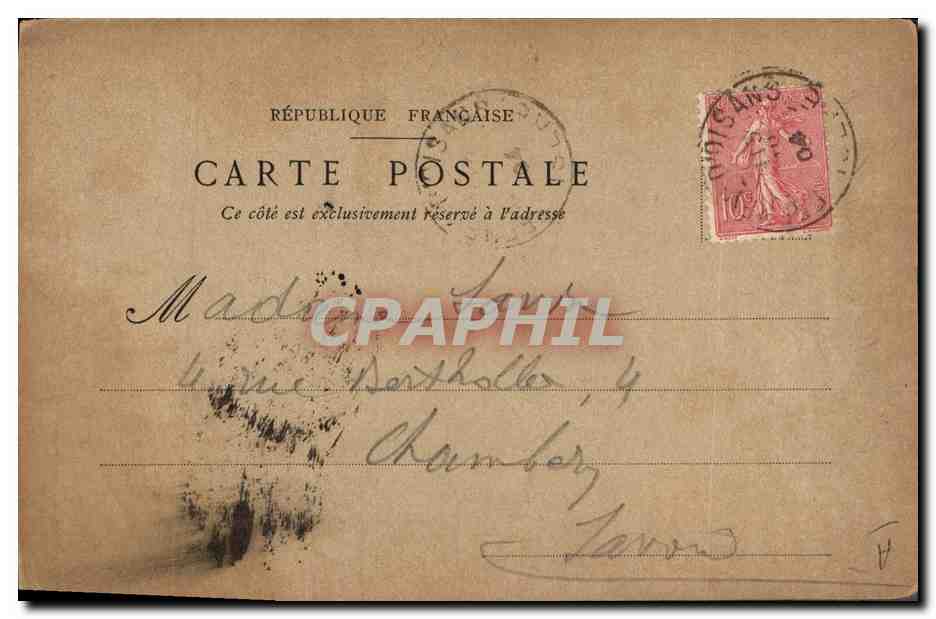 RÉPUBLIQUE FRANÇAISE
CARTE POSTALE
Ce côté est exclusivement réservé à l'adresse
10c
OISANS
04
Madame
CPAPHIL
4 rue Berthollet, 4
Chambéry
Savoie
A